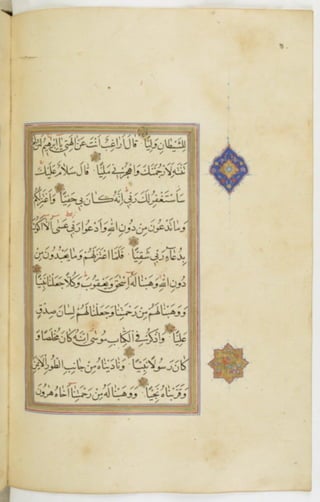 للشيطان وليا قال اراغب انت عن الهتي يا ابرهيم لئن لم
تنته لارجمنك واهجرني مليا قال سلام عليك
ساستغفر لك ربي انه كان بي حفيا واعتزلكم
وما تدعون من دون الله وادعوا ربي عسى الا اكون
بدعاء ربي شقيا فلما اعتزلهم وما يعبدون من
دون الله وهبنا له اسحق ويعقوب وكلا جعلنا نبيا
ووهبنا لهم من رحمتنا وجعلنا لهم لسان صدق
عليا واذكر في الكتاب موسى انه كان مخلصا و
كان رسولا نبيا وناديناه من جانب الطور الايمن
وقربناه نجيا ووهبنا له من رحمتنا اخاه هرون